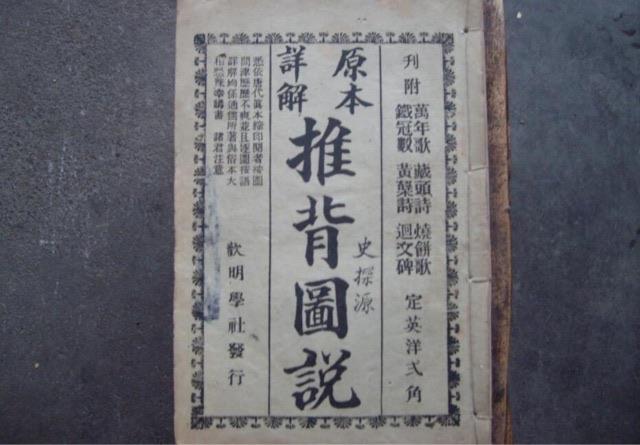 刊附
萬年歌 藏頭詩 燒餅歌
鐵冠數 黃葉詩 迴文碑
定英洋弍角
原本
詳解
推背圖説
史探源
唐代真本縮印閱者按圖
問津歷歷不爽並且逐圖按語
詳解均係通儒所著與俗本大
相懸殊幸購書 諸君注意
明學社發行